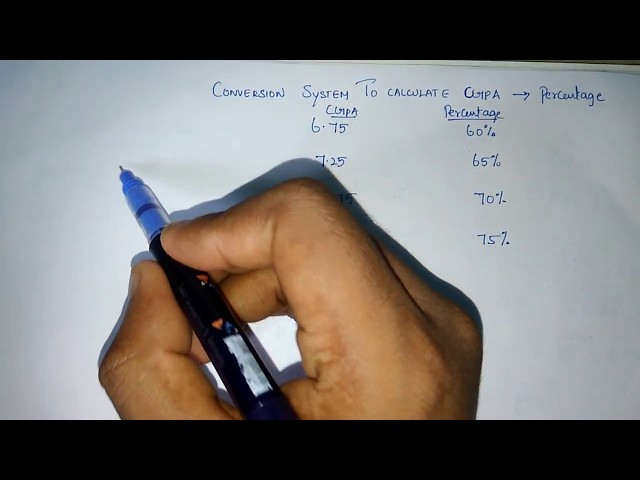 CONVERSION SYSTEM TO CALCULATE CGPA → Percentage
CGPA Percentage
6.75 60%
7.25 65%
75 70%
75%